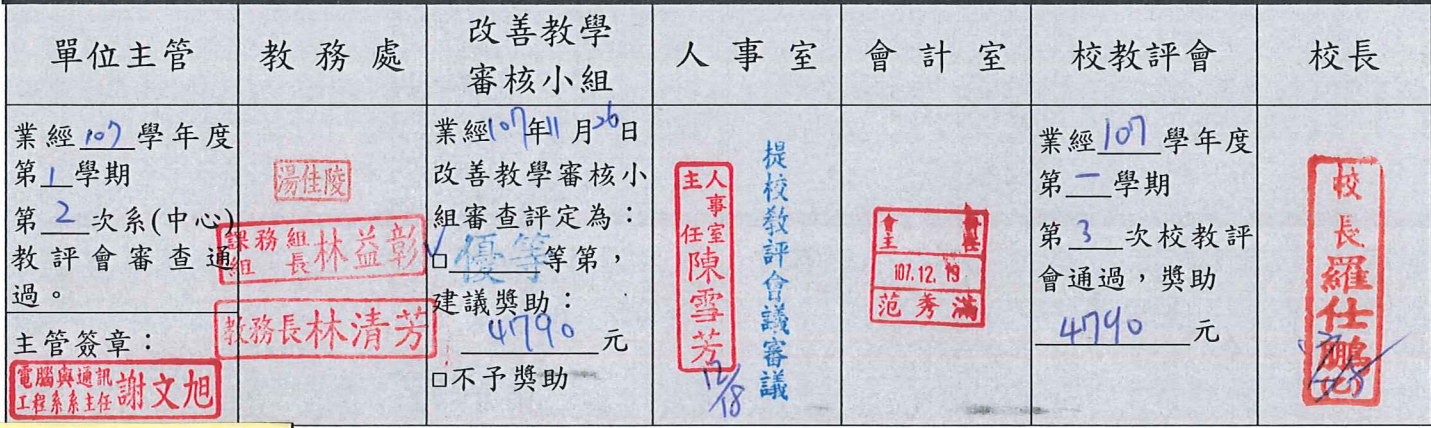 單位主管
教務處
改善教學
審核小組
人事室
會計室
校教評會
校長
業經107學年度
第1學期
第2次系(中心)
教評會審查通
過。
主管簽章：
電腦與通訊
工程系系主任 謝文旭
湯佳陵
課務組
組長 林益彰
教務長林清芳
業經107年11月26日
改善教學審核小
組審查評定為：
☑優等等第，
建議獎助：
4790元
□不予獎助
人事室
主任 陳雪芳
12/18
提校教評會議審議
會計
主任
107.12.19
范秀滿
業經107學年度
第一學期
第3次校教評
會通過，獎助
4790元
校長羅仕鵬